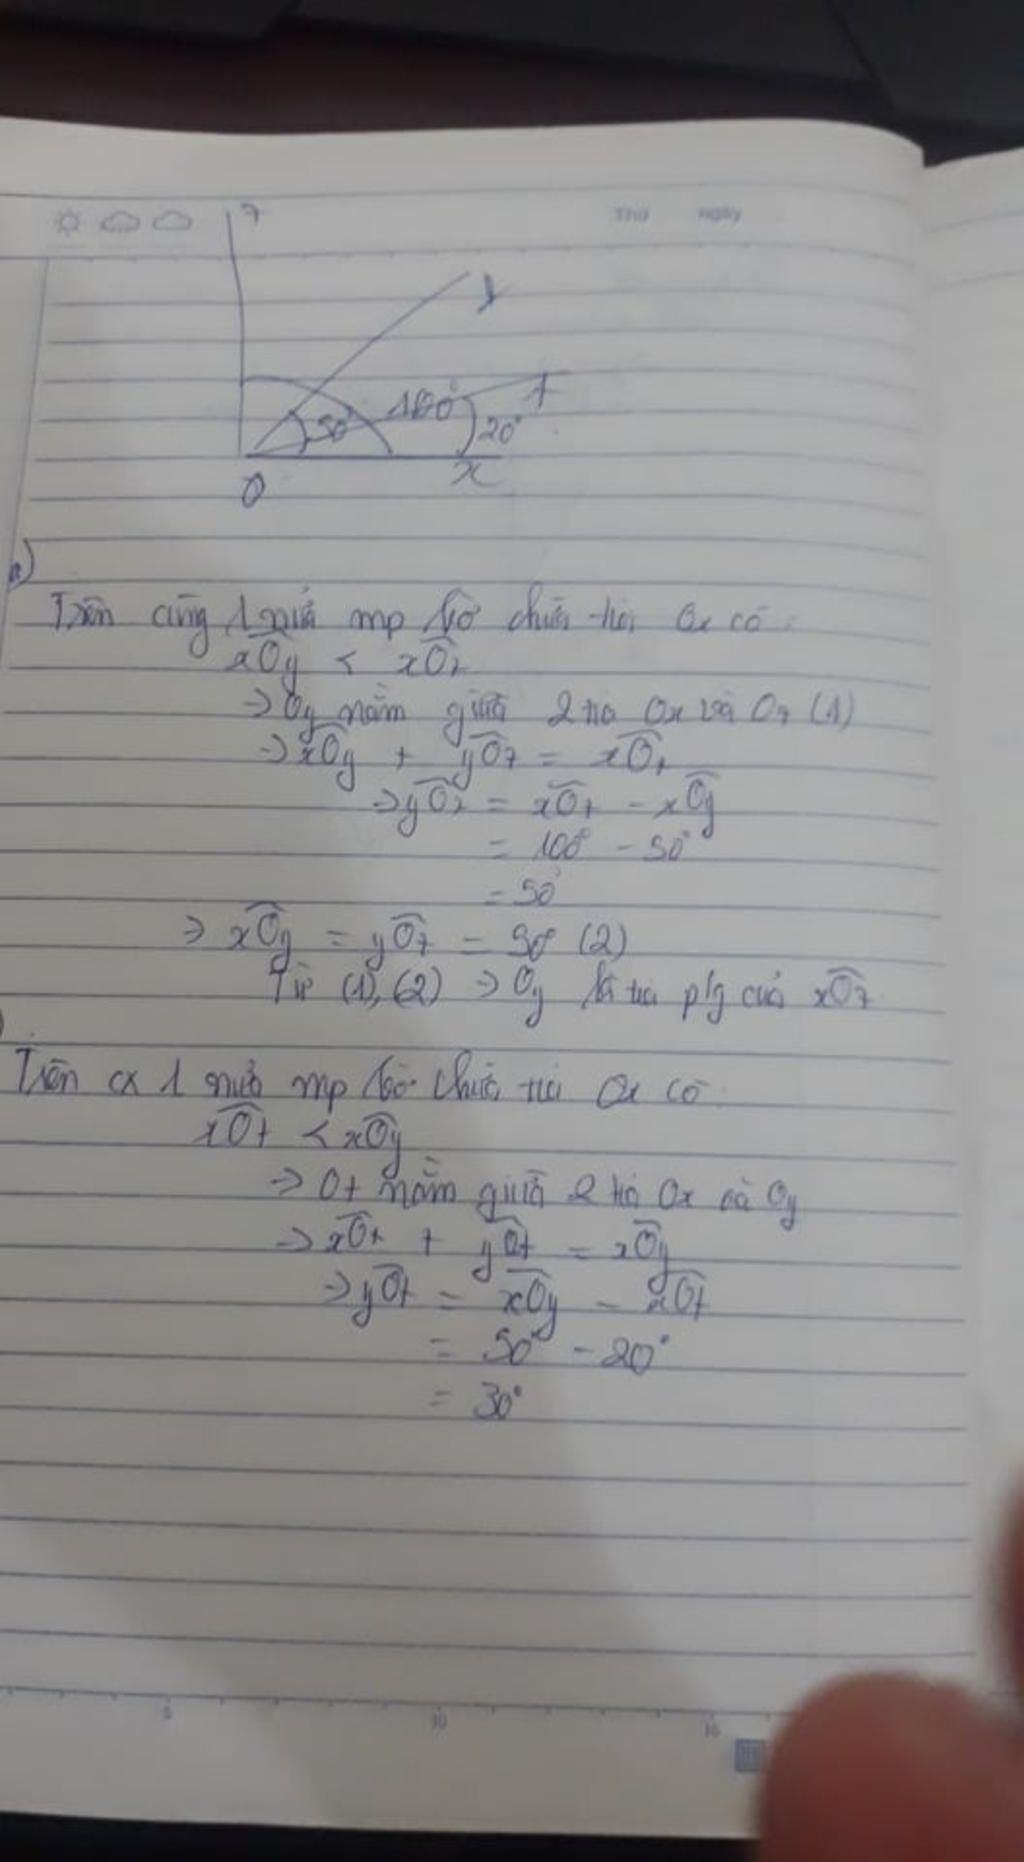 Thứ ngày
z
y
100°
t
50°
20°
O
x
a)
Trên cùng 1 nửa mp bờ chứa tia Ox có:
xOy < xOz
⇒ Oy nằm giữa 2 tia Ox và Oz (1)
⇒ xOy + yOz = xOz
⇒ yOz = xOz - xOy
= 100° - 50°
= 50°
⇒ xOy = yOz = 50° (2)
Từ (1), (2) ⇒ Oy là tia p/g của xOz
)
Trên cx 1 nửa mp bờ chứa tia Ox có
xOt < xOy
⇒ Ot nằm giữa 2 tia Ox và Oy
⇒ xOt + yOt = xOy
⇒ yOt = xOy - xOt
= 50° - 20°
= 30°
5 10 15